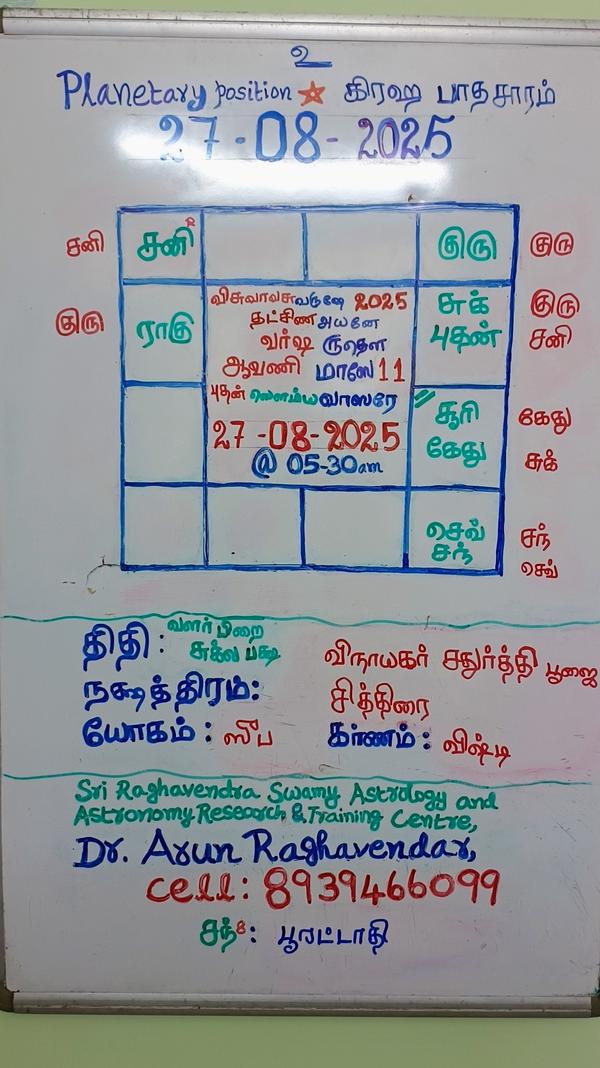 உ
Planetary position கிரஹ பாதசாரம்
27-08-2025
சனி சனி R குரு குரு
குரு ராகு சுக் குரு
புதன் சனி
விசுவாவசு வருஷே 2025
தட்சிண அயனே
வர்ஷ ருதௌ
ஆவணி மாஸே 11
புதன் ஸௌம்ய வாஸரே
27-08-2025
@ 05-30am
சூரி கேது
கேது சுக்
செவ் சந்
சந் செவ்
திதி: வளர் பிறை
சுக்ல பக்ஷ விநாயகர் சதுர்த்தி பூஜை
நக்ஷத்திரம்: சித்திரை
யோகம்: ஸுப கர்ணம்: விஷ்டி
Sri Raghavendra Swamy Astrology and
Astronomy Research & Training Centre,
Dr. Arun Raghavendar,
cell: 8939466099
சந் 8: பூரட்டாதி